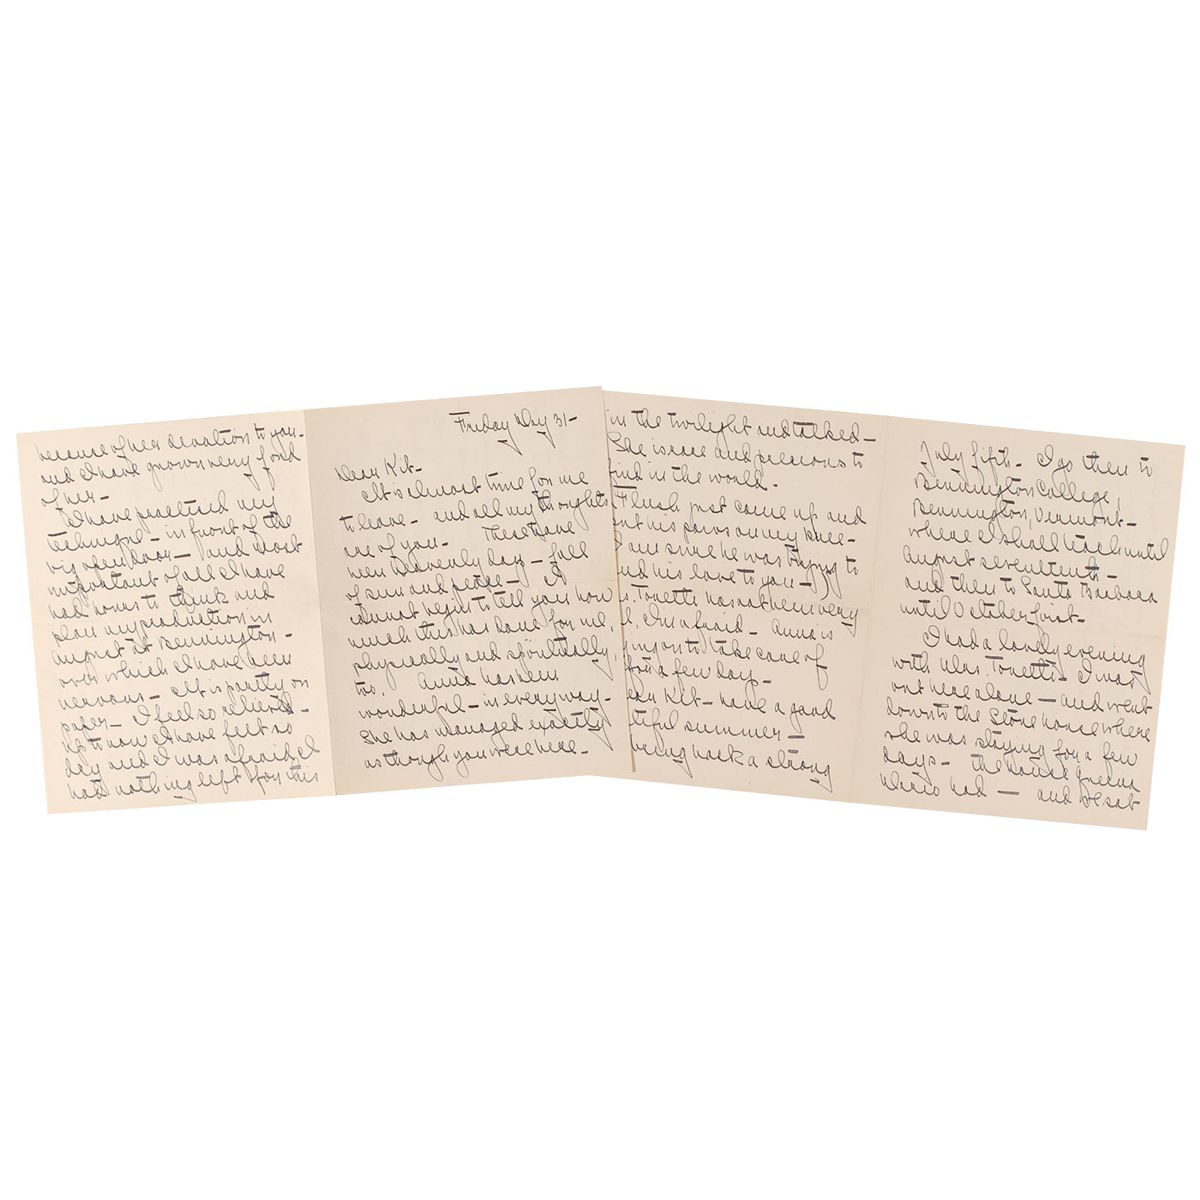 Friday May 31-
Dear Kit-
It is almost time for me
to leave - and all my thoughts
are of you - These have
been heavenly days - full
of sun and peace - I
cannot begin to tell you how
much this has done for me,
physically and spiritually,
too. Anna has been
wonderful - in every way -
She has managed exactly
as though you were here -
because of her devotion to you -
and I have grown very fond
of her -
I have practised my
technique - in front of the
big open door - and most
important of all I have
had hours to think and
plan my production in
August at Bennington -
over which I have been
nervous - It is partly on
paper - I feel so relieved -
Up to now I have felt so
dry and I was afraid I
had nothing left for this
July fifth - I go then to
Bennington College,
Bennington, Vermont -
where I shall teach until
August seventeenth -
and then to Santa Barbara
until October first -
I had a lovely evening
with Mrs. Tonetti - I was
out here alone - and went
down to the stone house where
she was staying for a few
days - the house
had - and we sat
in the twilight and talked -
She is rare and precious to
find in the world.
Flush just came up and
put his paws on my knee -
I am sure he was trying to
send his love to you -
Tonetti has not been very
I'm afraid - Anna is
going to take care of
for a few days -
Dear Kit - have a good
summer -
back a strong